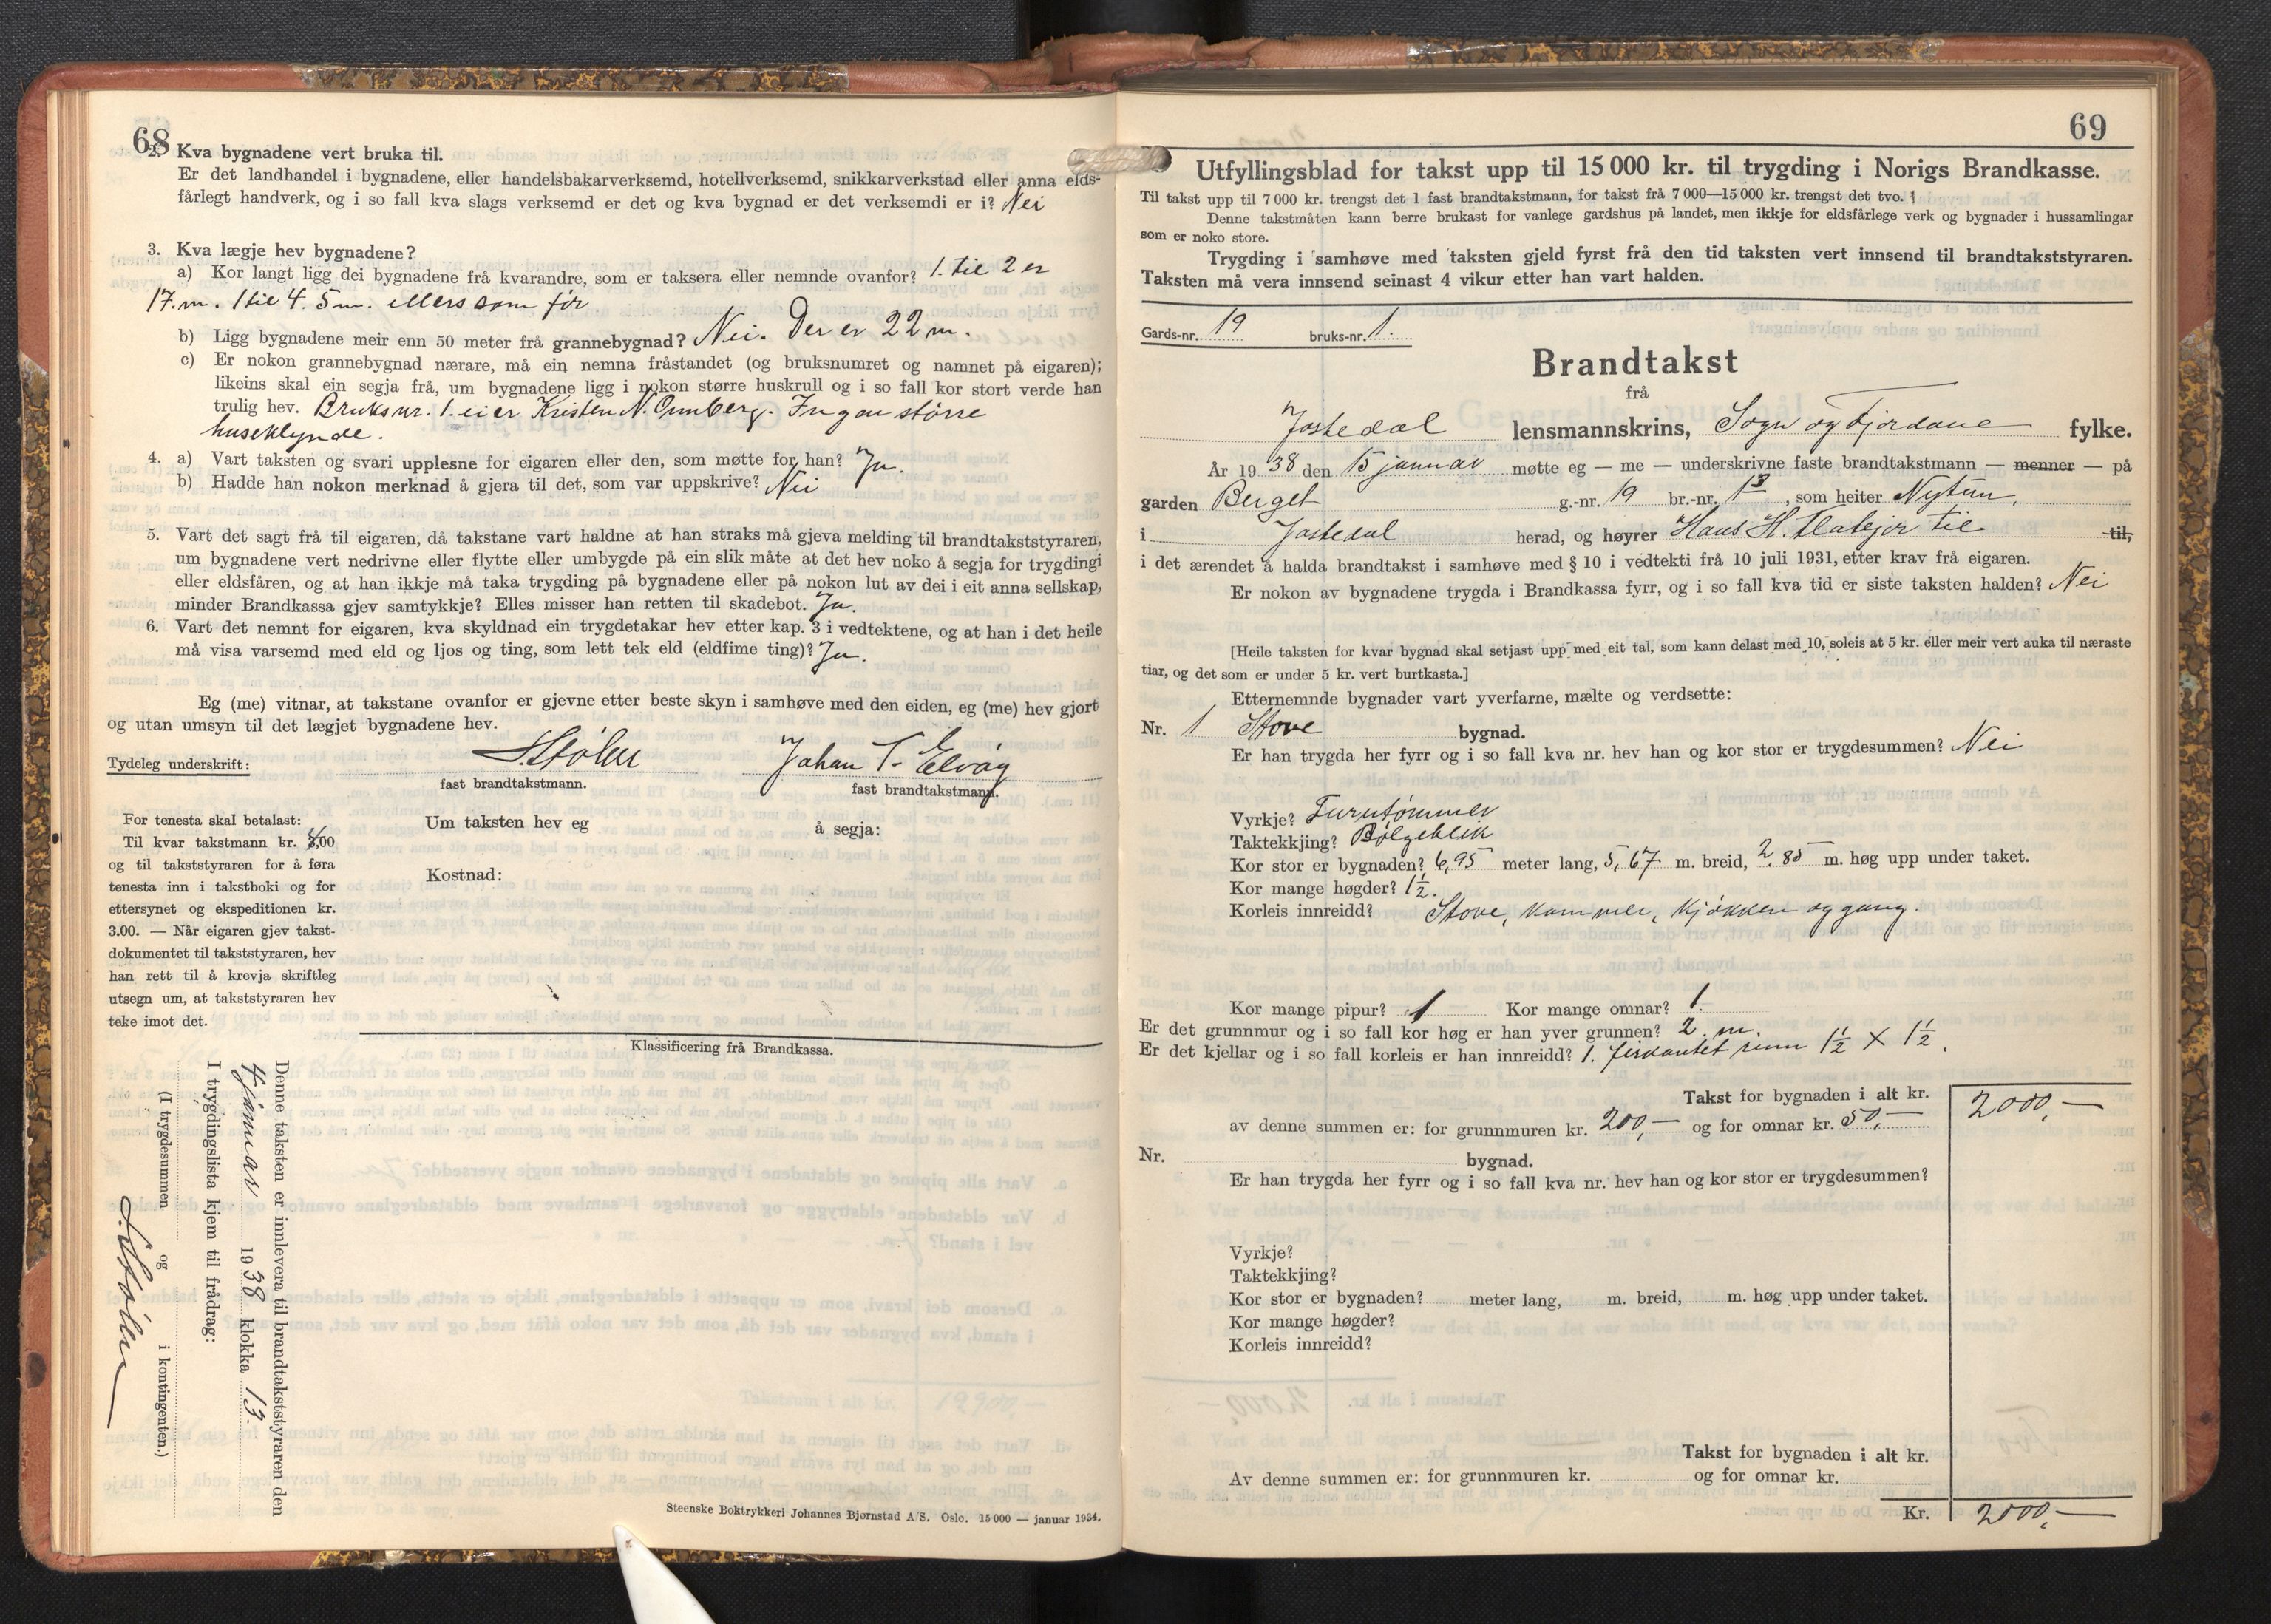 68
2. Kva bygnadene vert bruka til.
Er det landhandel i bygnadene, eller handelsbakarverksemd, hotellverksemd, snikkarverkstad eller anna elds-
fårlegt handverk, og i so fall kva slags verksemd er det og kva bygnad er det verksemdi er i? Nei
3. Kva lægje hev bygnadene?
a) Kor langt ligg dei bygnadene frå kvarandre, som er taksera eller nemnde ovanfor? 1. til 2 er
17. m. 1 til 4. 5 m. ellers som før
b) Ligg bygnadene meir enn 50 meter frå grannebygnad? Nei. Der er 22 m.
c) Er nokon grannebygnad nærare, må ein nemna fråstandet (og bruksnumret og namnet på eigaren);
likeins skal ein segja frå, um bygnadene ligg i nokon større huskrull og i so fall kor stort verde han
trulig hev. Bruksnr. 1. eier Kristen N. Ormberg. Ingen større
huseklynde.
4. a) Vart taksten og svari upplesne for eigaren eller den, som møtte for han? Ja.
b) Hadde han nokon merknad å gjera til det, som var uppskrive? Nei
5. Vart det sagt frå til eigaren, då takstane vart haldne at han straks må gjeva melding til brandtakststyraren,
um bygnadene vert nedrivne eller flytte eller umbygde på ein slik måte at det hev noko å segja for trygdingi
eller eldsfåren, og at han ikkje må taka trygding på bygnadene eller på nokon lut av dei i eit anna sellskap,
minder Brandkassa gjev samtykkje? Elles misser han retten til skadebot. Ja.
6. Vart det nemnt for eigaren, kva skyldnad ein trygdetakar hev etter kap. 3 i vedtektene, og at han i det heile
må visa varsemd med eld og ljos og ting, som lett tek eld (eldfime ting)? Ja.
Eg (me) vitnar, at takstane ovanfor er gjevne etter beste skyn i samhøve med den eiden, eg (me) hev gjort
og utan umsyn til det lægjet bygnadene hev.
Tydeleg underskrift: S. Stølen Johan T. Elvåg
fast brandtakstmann. fast brandtakstmann.
For tenesta skal betalast:
Til kvar takstmann kr. 4,00
og til takststyraren for å føra
tenesta inn i takstboki og for
ettersynet og ekspeditionen kr.
3.00. — Når eigaren gjev takst-
dokumentet til takststyraren, hev
han rett til å krevja skriftleg
utsegn um, at takststyraren hev
teke imot det.
Um taksten hev eg å segja:
Kostnad:
Klassificering frå Brandkassa.
Denne taksten er innlevera til brandtakststyraren den
4 januar 1938 klokka 13.
I trygdingslista kjem til frådrag:
(I trygdesummen og i kontingenten.)
S. Stølen
Steenske Boktrykkeri Johannes Bjørnstad A/S. Oslo. 15 000 — januar 1934.
69
Utfyllingsblad for takst upp til 15 000 kr. til trygding i Norigs Brandkasse.
Til takst upp til 7 000 kr. trengst det 1 fast brandtakstmann, for takst frå 7 000—15 000 kr. trengst det tvo.
Denne takstmåten kann berre brukast for vanlege gardshus på landet, men ikkje for eldsfårlege verk og bygnader i hussamlingar
som er noko store.
Trygding i samhøve med taksten gjeld fyrst frå den tid taksten vert innsend til brandtakststyraren.
Taksten må vera innsend seinast 4 vikur etter han vart halden.
Gards-nr. 19 bruks-nr. 1.
Brandtakst
frå
Jostedal lensmannskrins, Sogn og Fjordane fylke.
År 1938 den 15 januar møtte eg — me — underskrivne faste brandtakstmann — menner — på
garden Berget g.-nr. 19 br.-nr. 13, som heiter Nytun.
i Jostedal herad, og høyrer Hans H. Flatejor til til,
i det ærendet å halda brandtakst i samhøve med § 10 i vedtekti frå 10 juli 1931, etter krav frå eigaren.
Er nokon av bygnadene trygda i Brandkassa fyrr, og i so fall kva tid er siste taksten halden? Nei
[Heile taksten for kvar bygnad skal setjast upp med eit tal, som kann delast med 10, soleis at 5 kr. eller meir vert auka til næraste
tiar, og det som er under 5 kr. vert burtkasta.]
Etternemnde bygnader vart yverfarne, mælte og verdsette:
Nr. 1 Stove bygnad.
Er han trygda her fyrr og i so fall kva nr. hev han og kor stor er trygdesummen? Nei
Vyrkje? Furutømmer
Taktekkjing? Bølgeblik
Kor stor er bygnaden? 6,95 meter lang, 5,67 m. breid, 2.85 m. høg upp under taket.
Kor mange høgder? 1½.
Korleis innreidd? Stove, kammer, kjøkken og gang.
Kor mange pipur? 1 Kor mange omnar? 1.
Er det grunnmur og i so fall kor høg er han yver grunnen? 2. m.
Er det kjellar og i so fall korleis er han innreidd? 1. firkantet rum 1½ X 1½.
Takst for bygnaden i alt kr. 2000,—
av denne summen er: for grunnmuren kr. 200,— og for omnar kr. 50,—
Nr. bygnad.
Er han trygda her fyrr og i so fall kva nr. hev han og kor stor er trygdesummen?
Vyrkje?
Taktekkjing?
Kor stor er bygnaden? meter lang, m. breid, m. høg upp under taket.
Kor mange høgder?
Korleis innreidd?
Takst for bygnaden i alt kr.
Av denne summen er: for grunnmuren kr. og for omnar kr.
Kr. 2000,—